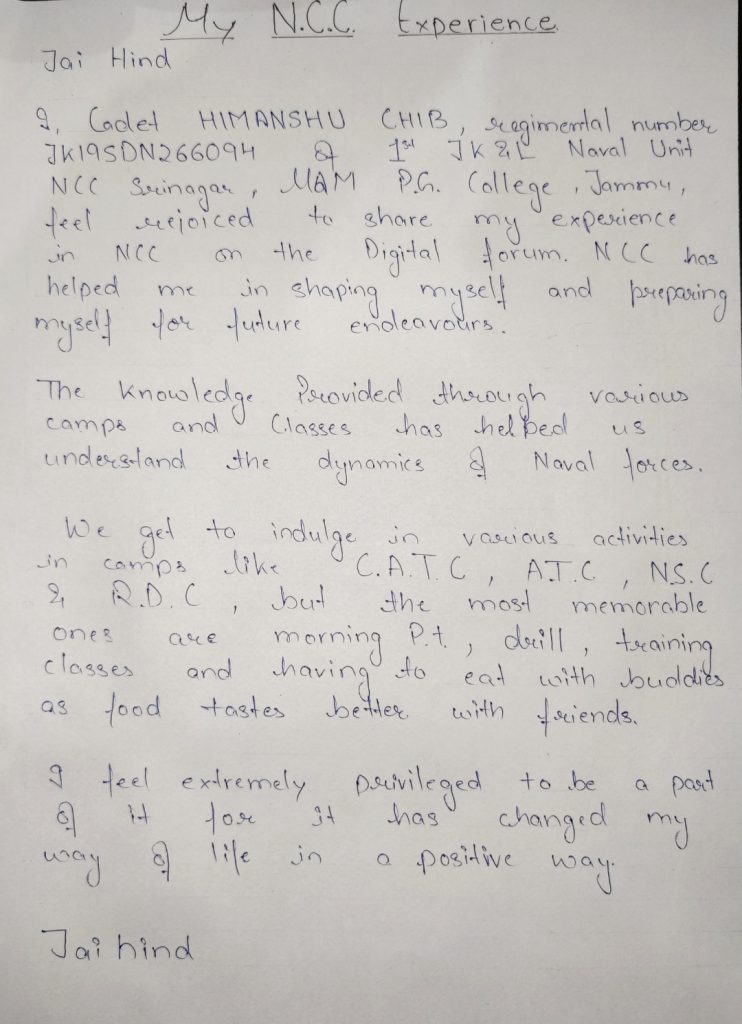 My N.C.C. Experience
Jai Hind
I, Cadet HIMANSHU CHIB, regimental number
JK19SDN266094 of 1st JK & L Naval Unit
NCC Srinagar, MAM P.G. College, Jammu,
feel rejoiced to share my experience
in NCC on the Digital forum. NCC has
helped me in shaping myself and preparing
myself for future endeavours.
The Knowledge Provided through various
camps and Classes has helped us
understand the dynamics of Naval forces.
We get to indulge in various activities
in camps like C.A.T.C, A.T.C, N.S.C
& R.D.C, but the most memorable
ones are morning P.t., drill, training
classes and having to eat with buddies
as food tastes better with friends.
I feel extremely privileged to be a part
of it for it has changed my
way of life in a positive way.
Jai hind